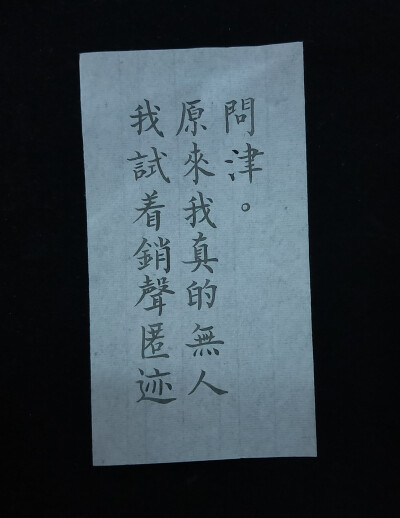 我試着銷聲匿迹
原來我真的無人
問津。